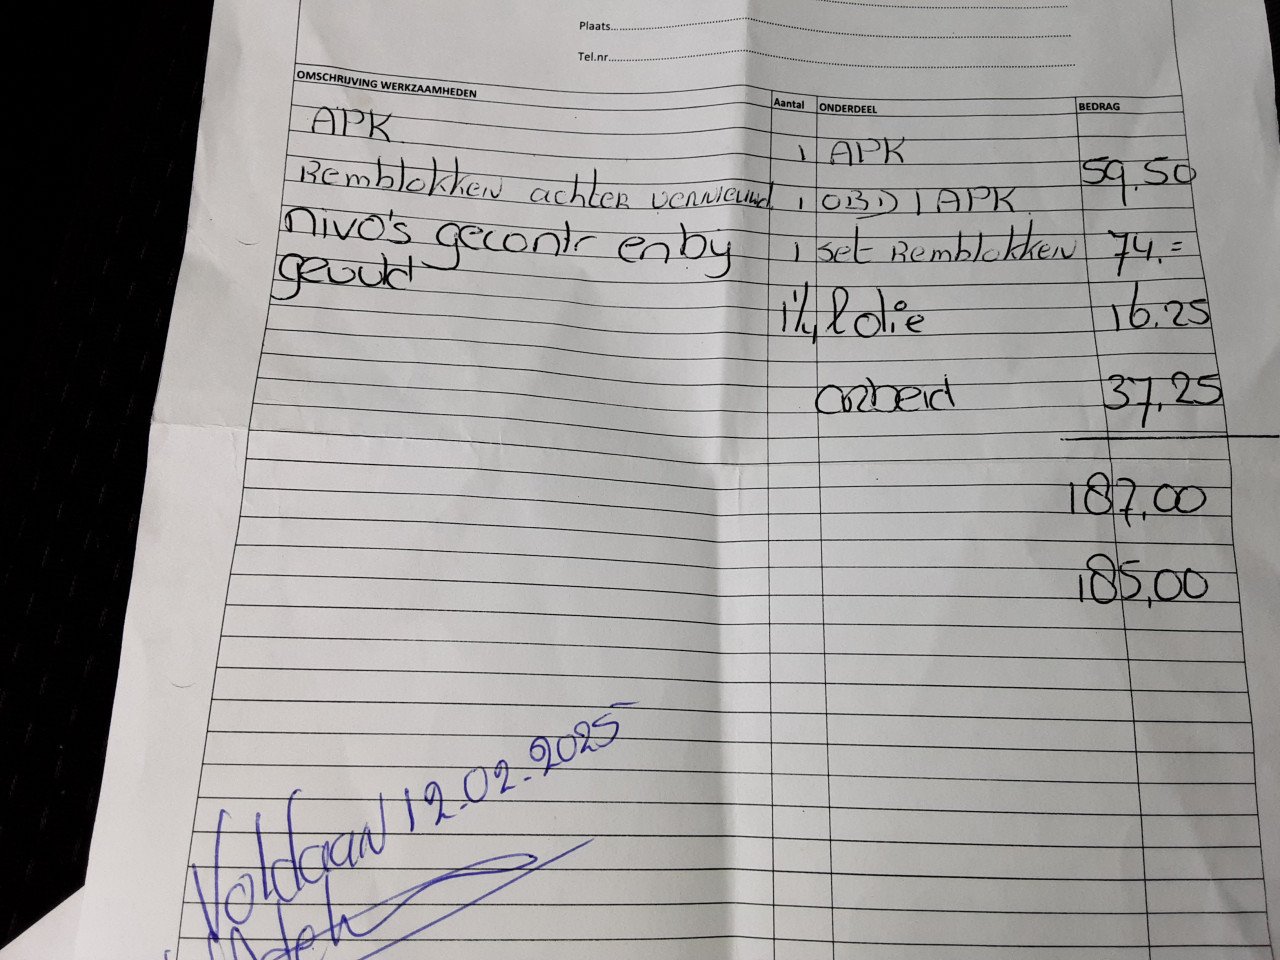 Plaats
Tel.nr
OMSCHRIJVING WERKZAAMHEDEN Aantal ONDERDEEL BEDRAG
APK 1 APK 59.50
Remblokken achter vernieuwd 1 OBD / APK
nivo's gecontr en by 1 set Remblokken 74.=
gevuld 1¼ l olie 16.25
arbeid 37,25
187,00
185,00
Voldaan 12-02-2025